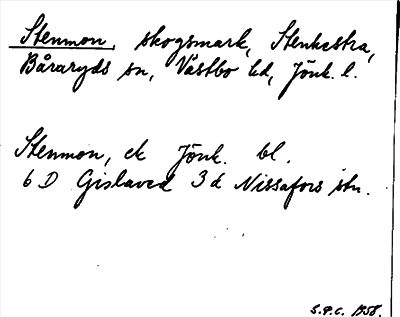 Stenmon, skogsmark, Stenkestra,
Båraryds sn, Västbo hd, Jönk. l.
Stenmon, ek Jönk. bl.
6 D Gislaved 3 d Nissafors stn.
S.P.C. 1958.